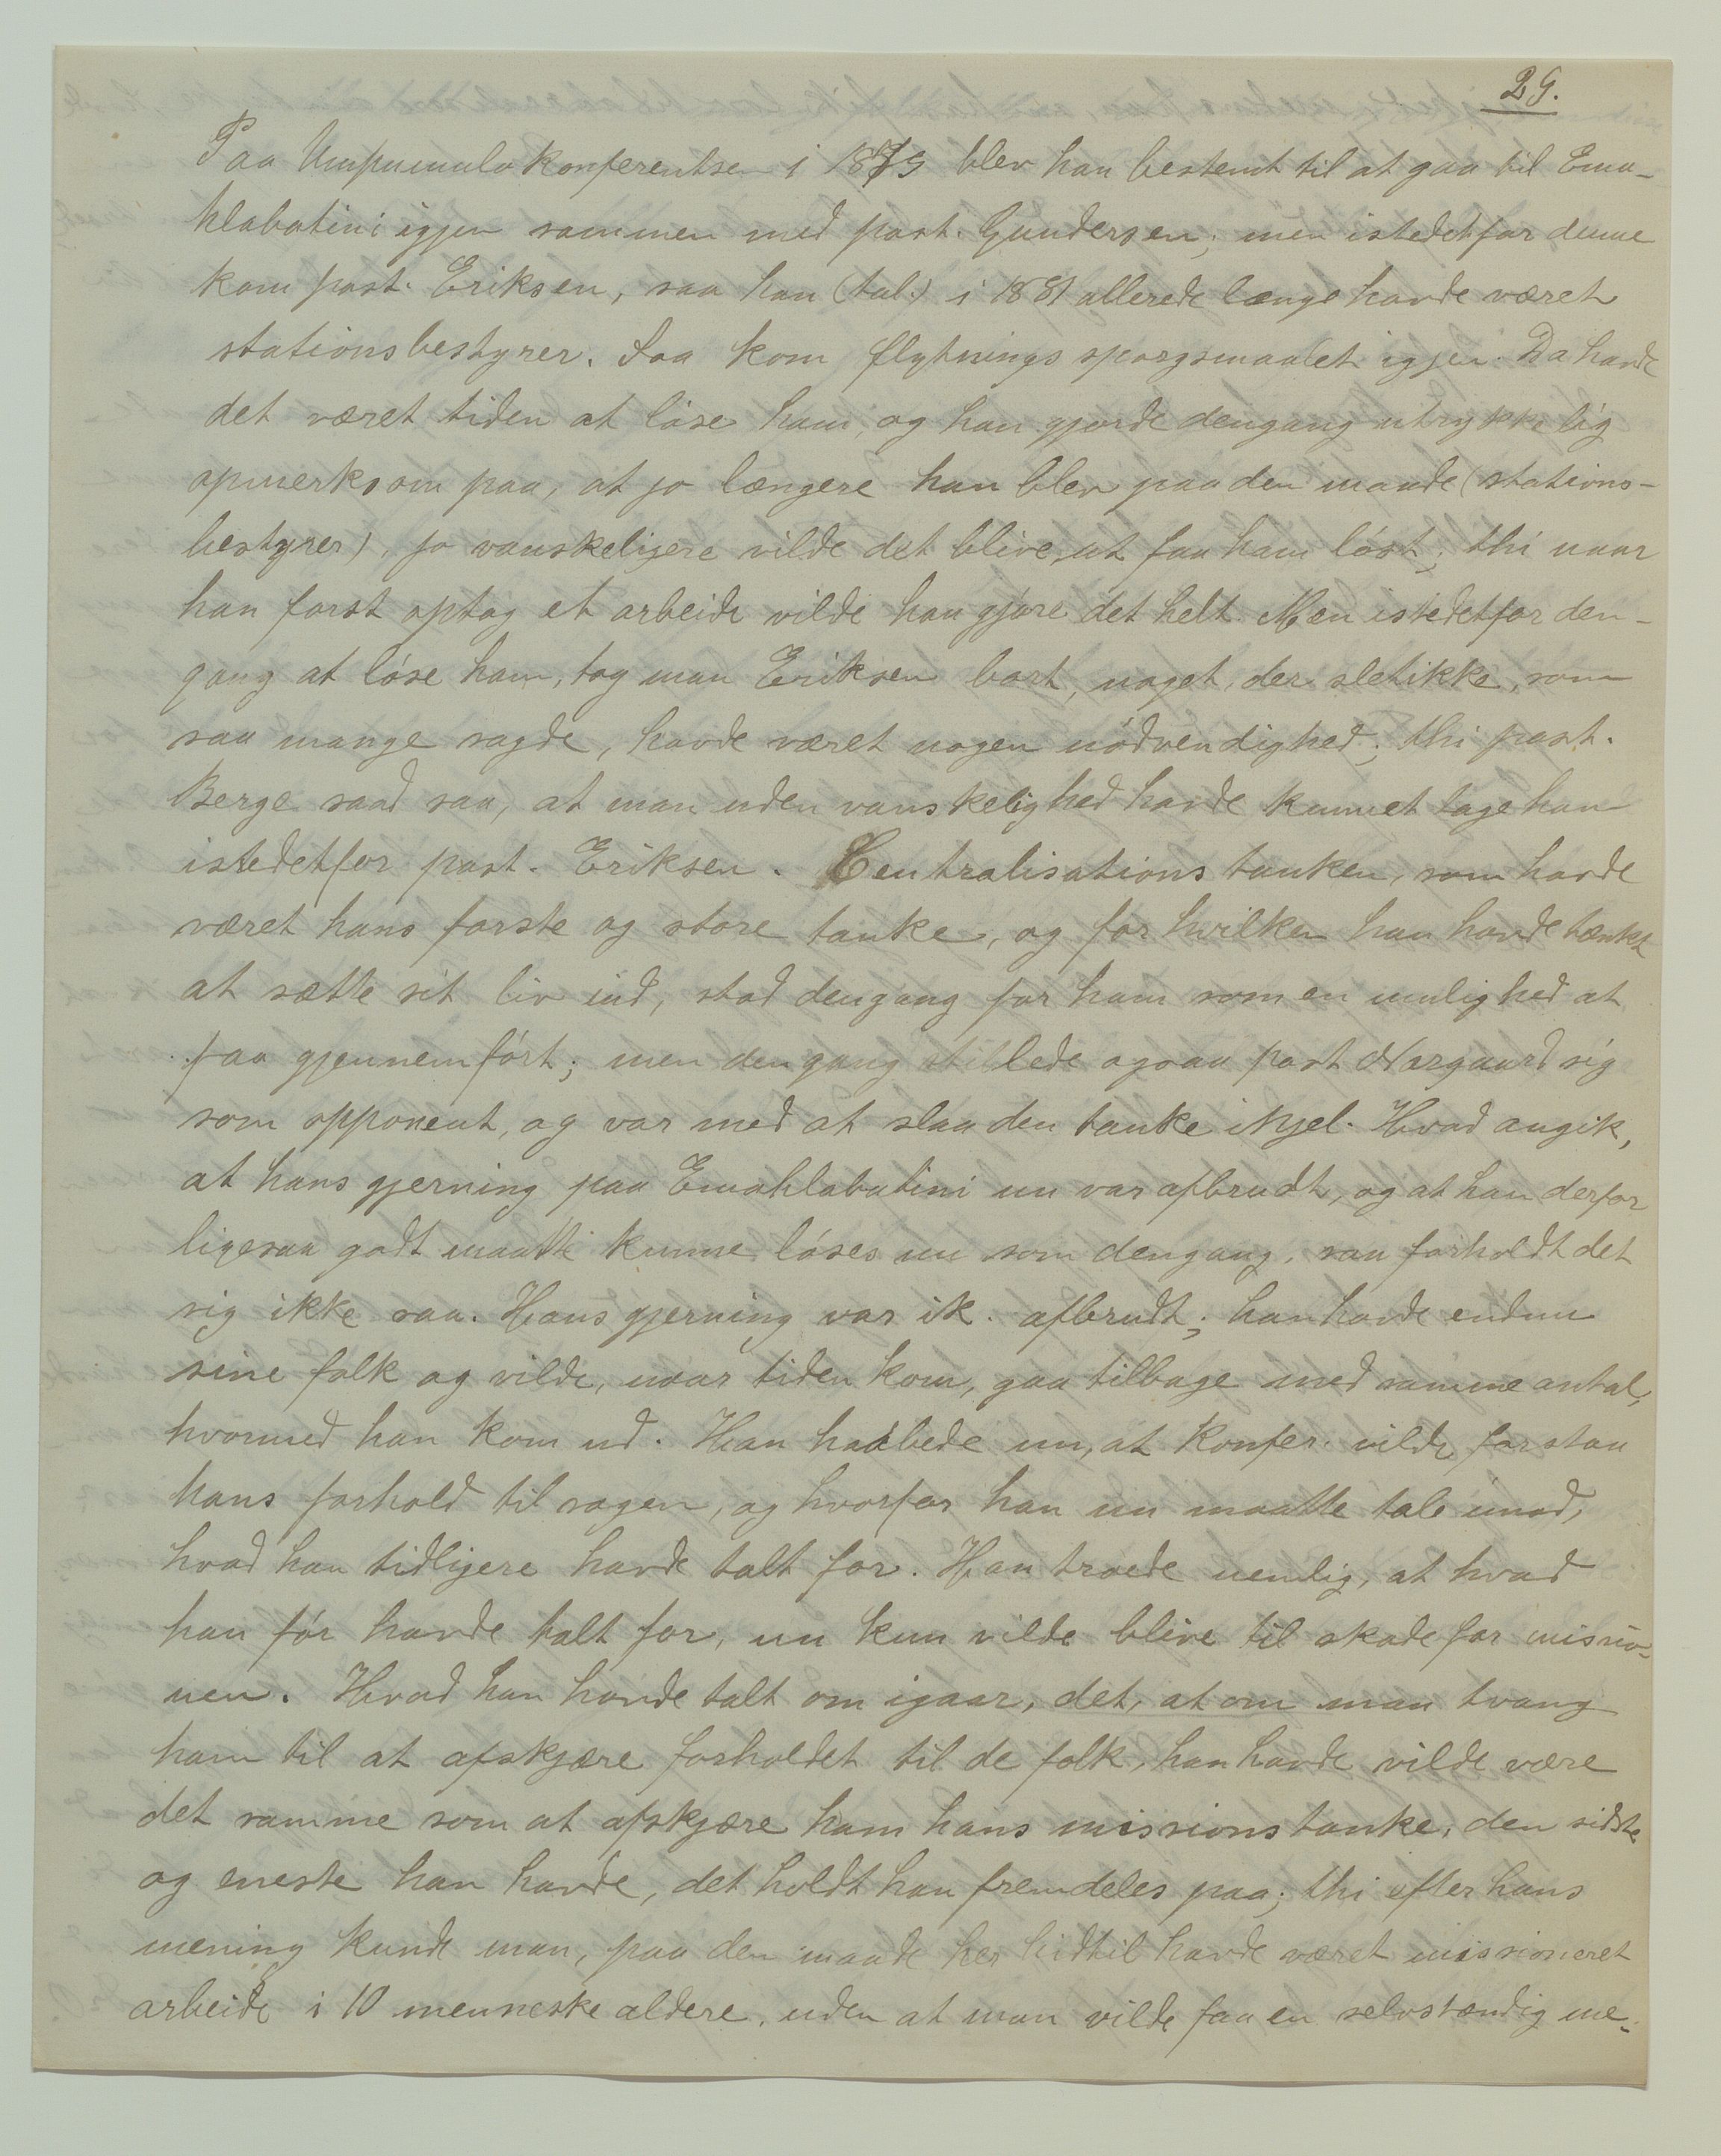 29.
Paa Umpumulo Konferentsen i 1879 blev han bestemt til at gaa til Ema-
hlabatini igjen sammen med past. Gundersen; men istedetfor denne
kom past. Eriksen, saa han (tal.) i 1881 allerede længe havde været
stationsbestyrer. Saa kom flytningsspørgsmaalet igjen. Da havde
det været tiden at løse ham, og han gjorde dengang utrykkelig
opmerksom paa, at jo længere han blev paa den maade (stations-
bestyrer), jo vanskeligere vilde det blive, at faa ham løst; thi naar
han først optog et arbeide vilde han gjøre det helt. Men istedetfor den-
gang at løse ham, tog man Eriksen bort, noget, der sletikke, som
saa mange sagde, havde været nogen nødvendighed; thi past.
Berge saad saa, at man uden vanskelighed havde kunnet tage han
istedetfor past. Eriksen. Centralisationstanken, som havde
været hans første og store tanke, og for hvilken han havde tænkt
at sætte sit liv ind, stod dengang for ham som en mulighed at
faa gjennemført; men dengang stillede ogsaa past Norgaard sig
som opponent, og var med at slaa den tanke ihjel. Hvad angik,
at hans gjerning paa Emahlabatini nu var afbrudt, og at han derfor
ligesaa godt maatte kunne løses nu som dengang, saa forholdt det
sig ikke saa. Hans gjerning var ik. afbrudt; han havde endnu
sine folk og vilde, naar tiden kom, gaa tilbage med samme antal,
hvormed han kom ud. Han haabede nu, at Konfer. vilde forstaa
hans forhold til sagen, og hvorfor han nu maatte tale imod,
hvad han tidligere havde talt for. Han troede nemlig, at hvad
han før havde talt for, nu kun vilde blive til skade for missio-
nen. Hvad han havde talt om igaar, det, at om man tvang
ham til at afskjære forholdet til de folk, han havde vilde være
det samme som at afskjære ham hans missionstanke, den sidste
og eneste han havde, det holdt han fremdeles paa; thi efter hans
mening kunde man, paa den maade her hidtil havde været missioneret
arbeide i 10 menneskealdere, uden at man vilde faa en selvstændig me-